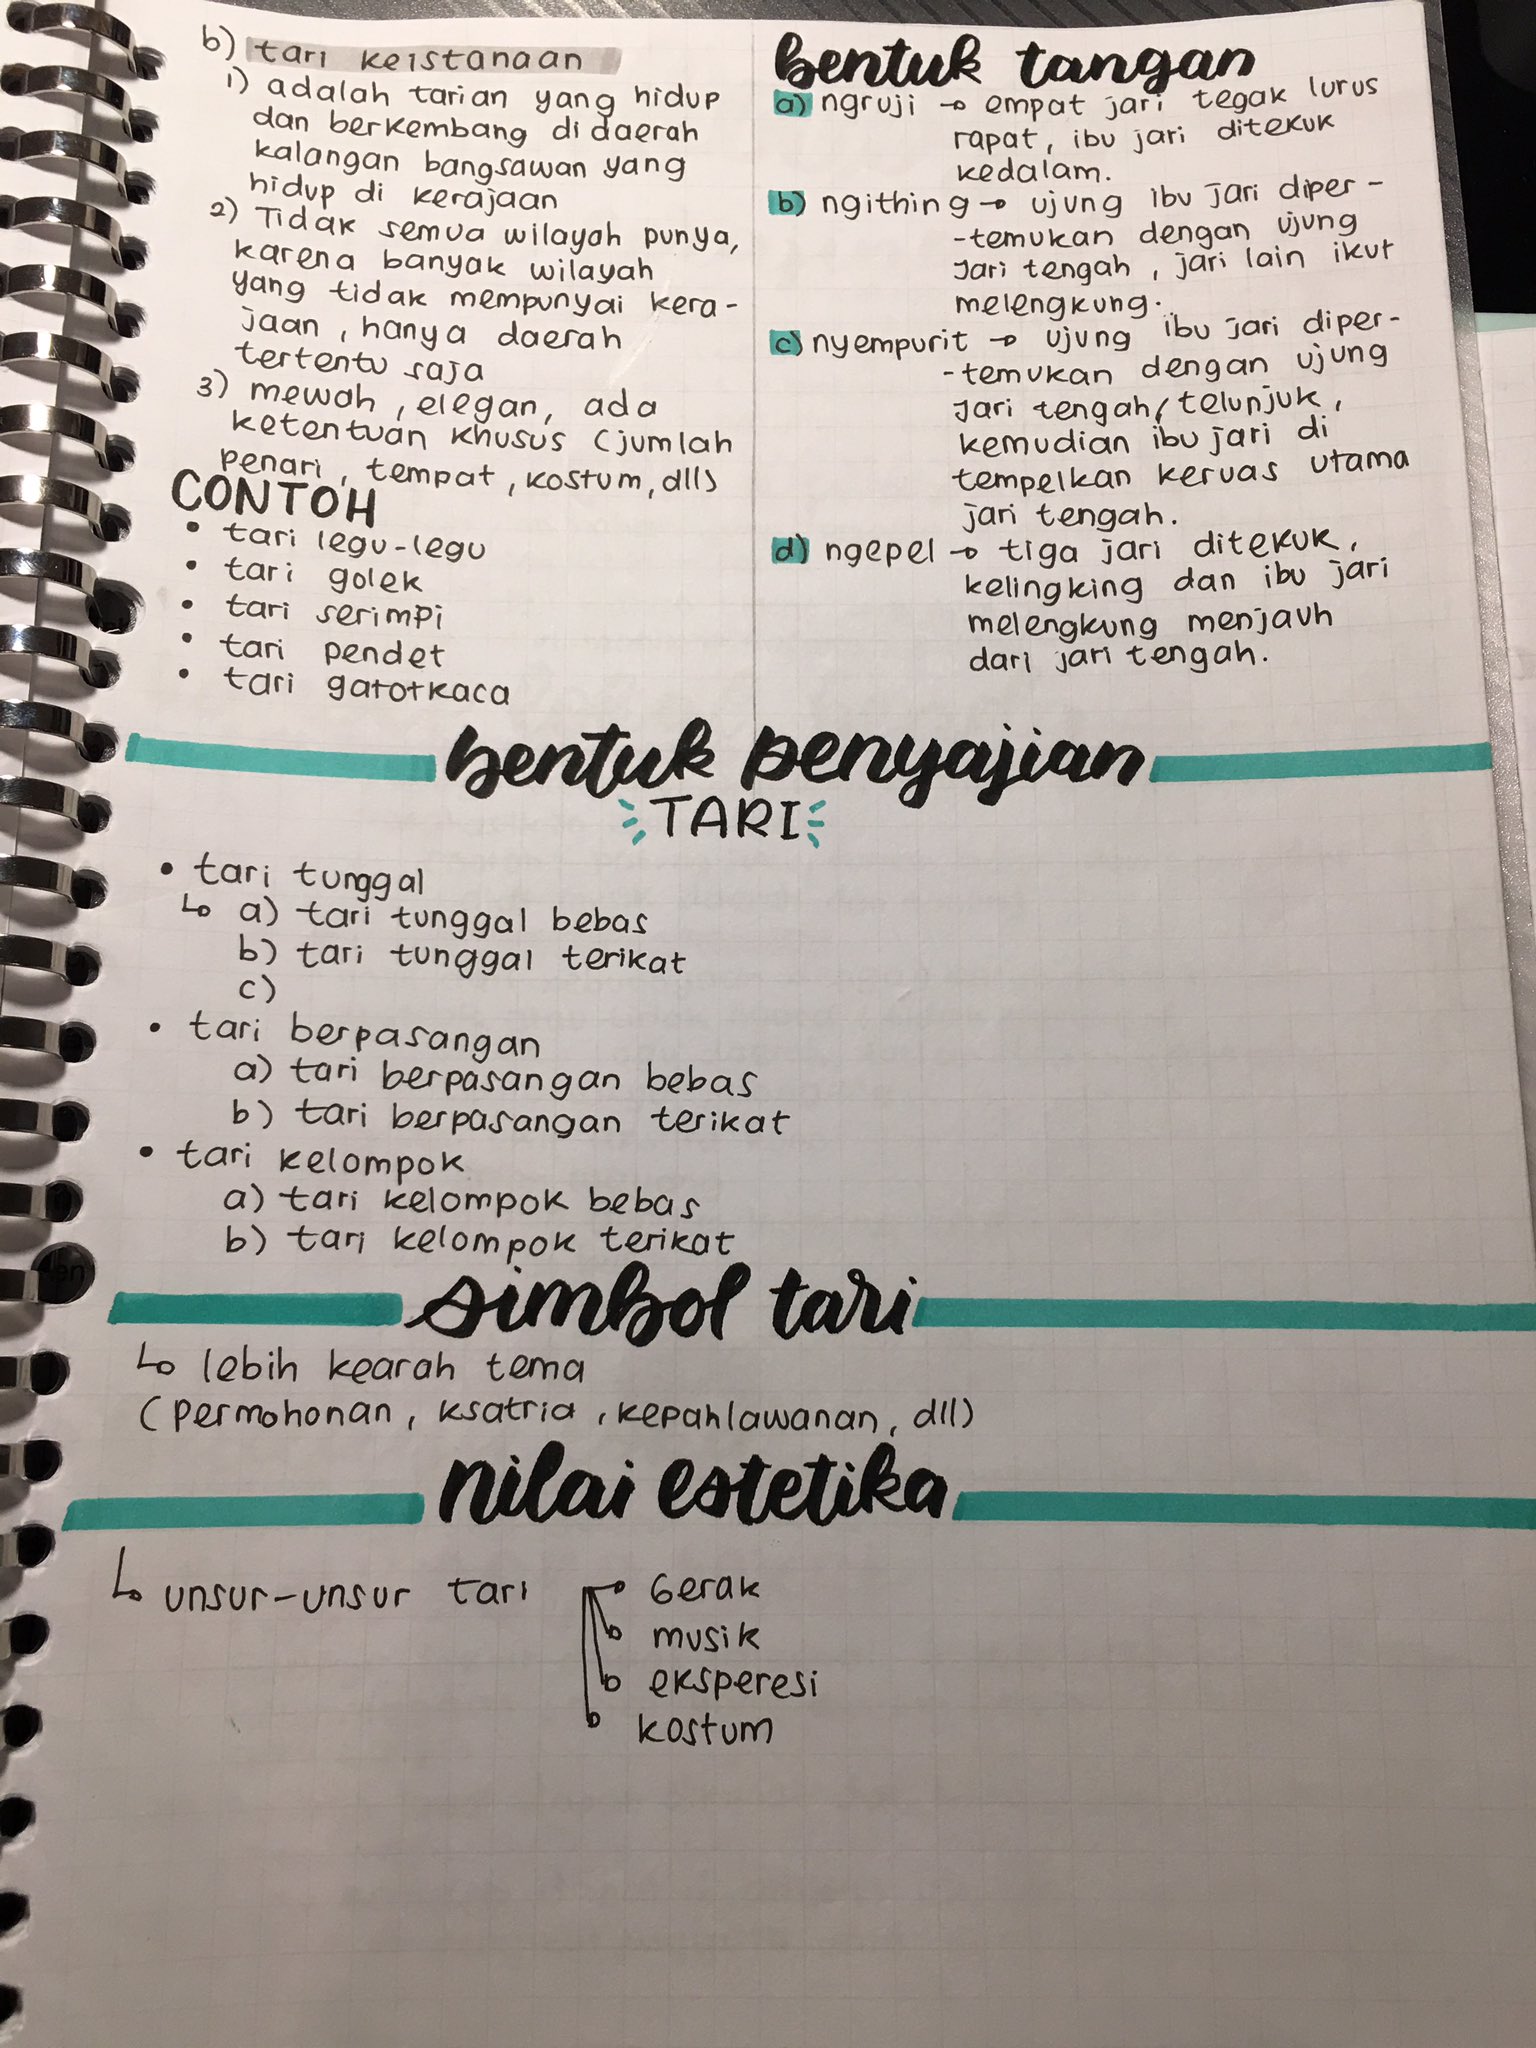 b) tari keistanaan
1) adalah tarian yang hidup
dan berkembang di daerah
kalangan bangsawan yang
hidup di kerajaan
2) Tidak semua wilayah punya,
karena banyak wilayah
yang tidak mempunyai kera-
jaan, hanya daerah
tertentu saja
3) mewah, elegan, ada
ketentuan khusus (jumlah
penari, tempat, kostum, dll)
CONTOH
• tari legu-legu
• tari golek
• tari serimpi
• tari pendet
• tari gatotkaca
bentuk tangan
a) ngruji → empat jari tegak lurus
rapat, ibu jari ditekuk
kedalam.
b) ngithing → ujung ibu jari diper-
-temukan dengan ujung
jari tengah, jari lain ikut
melengkung.
c) nyempurit → ujung ibu jari diper-
-temukan dengan ujung
jari tengah/telunjuk,
kemudian ibu jari di
tempelkan keruas utama
jari tengah.
d) ngepel → tiga jari ditekuk,
kelingking dan ibu jari
melengkung menjauh
dari jari tengah.
bentuk penyajian
TARI
• tari tunggal
↳ a) tari tunggal bebas
b) tari tunggal terikat
c)
• tari berpasangan
a) tari berpasangan bebas
b) tari berpasangan terikat
• tari kelompok
a) tari kelompok bebas
b) tari kelompok terikat
simbol tari
↳ lebih kearah tema
(permohonan, ksatria, kepahlawanan, dll)
nilai estetika
↳ unsur-unsur tari → Gerak
→ musik
→ eksperesi
→ kostum